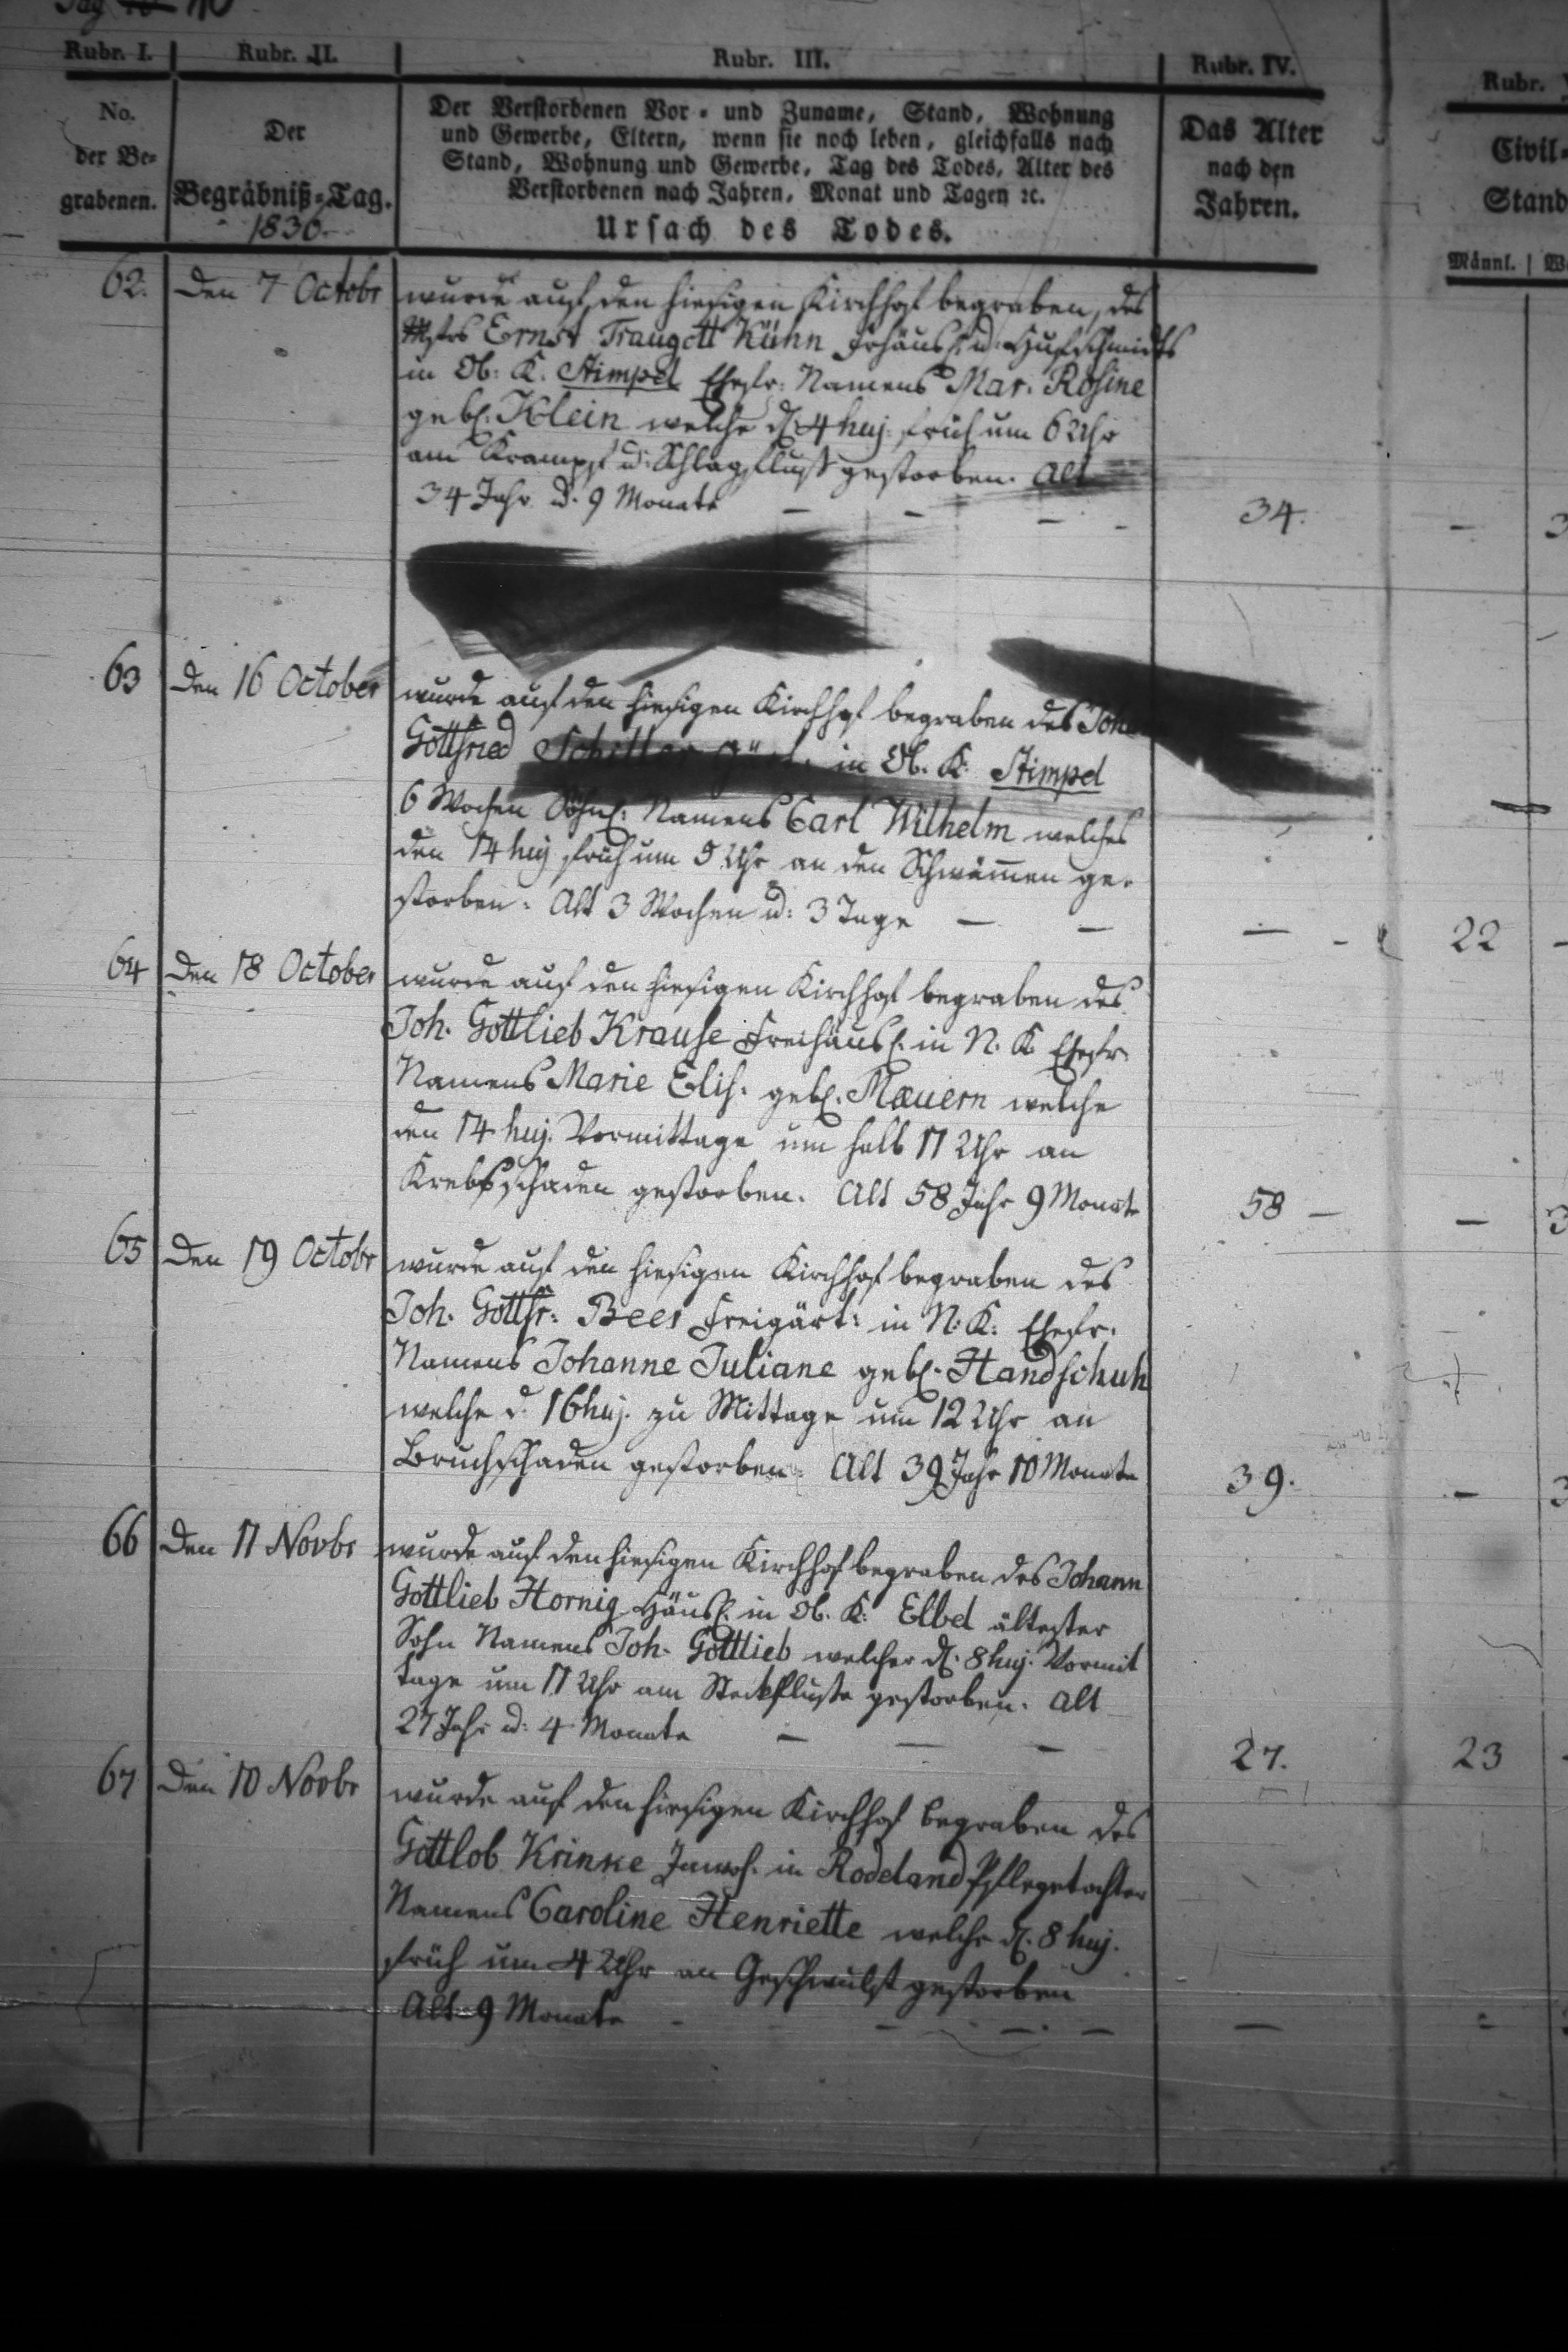 Rubr. I. Rubr. II. Rubr. III. Rubr. IV. Rubr.
No.
der Be=
grabenen.
Der
Begräbniß=Tag.
1830.
Der Verstorbenen Vor = und Zuname, Stand, Wohnung
und Gewerbe, Eltern, wenn sie noch leben, gleichfalls nach
Stand, Wohnung und Gewerbe, Tag des Todes, Alter des
Verstorbenen nach Jahren, Monat und Tagen ꝛc.
Ursach des Todes.
Das Alter
nach den
Jahren.
Civil=
Stand
Männl.
62. Den 7 Octobr wurde auf den hiesigen Kirchhof begraben, des
Mstrs Ernst Traugott Kühn Frhäusl. u. Hufschmidts
in Ob. K. Stimpel Ehefr. Namens Mar. Rosine
geb. Klein welche d. 4 huj. früh um 6 Uhr
am Krampf u. Schlagfluß gestorben. Alt
34 Jahr u. 9 Monate – – – – 34. –
63 Den 16 October wurde auf den hiesigen Kirchhof begraben des Joh
Gottfried Schiller in Ob. K. Stimpel
6 Wochen Söhnl. Namens Carl Wilhelm welches
den 14 huj früh um 5 Uhr an den Schwämmen ge-
storben. Alt 3 Wochen u. 3 Tage – – – – 22
64 Den 18 October wurde auf den hiesigen Kirchhof begraben des
Joh. Gottlieb Krause Freihäusl. in N. K. Ehefr.
Namens Marie Elis. geb. Mæuern welche
den 14 huj. Vormittage um halb 11 Uhr an
Krebsschaden gestorben. Alt 58 Jahr 9 Monate 58 – –
65 Den 19 Octobr wurde auf den hiesigen Kirchhof begraben des
Joh. Gottfr. Beer Freigärt. in N. K. Ehefr.
Namens Johanne Juliane geb. Handschuh
welche d. 16 huj. zu Mittage um 12 Uhr an
Bruchschaden gestorben. Alt 39 Jahr 10 Monate 39. –
66 Den 11 Novbr wurde auf den hiesigen Kirchhof begraben des Johann
Gottlieb Hornig Häusl. in Ob. K. Elbel ältester
Sohn Namens Joh. Gottlieb welcher d. 8 huj. Vormit
tage um 11 Uhr am Steckfluße gestorben. Alt
27 Jahr u. 4 Monate – – – 27. 23
67 Den 10 Novbr wurde auf den hiesigen Kirchhof begraben des
Gottlob Krinke Inwoh. in Rodeland Pflegetochter
Namens Caroline Henriette welche d. 8 huj.
früh um 4 Uhr an Geschwulst gestorben
Alt 9 Monate – – – – –